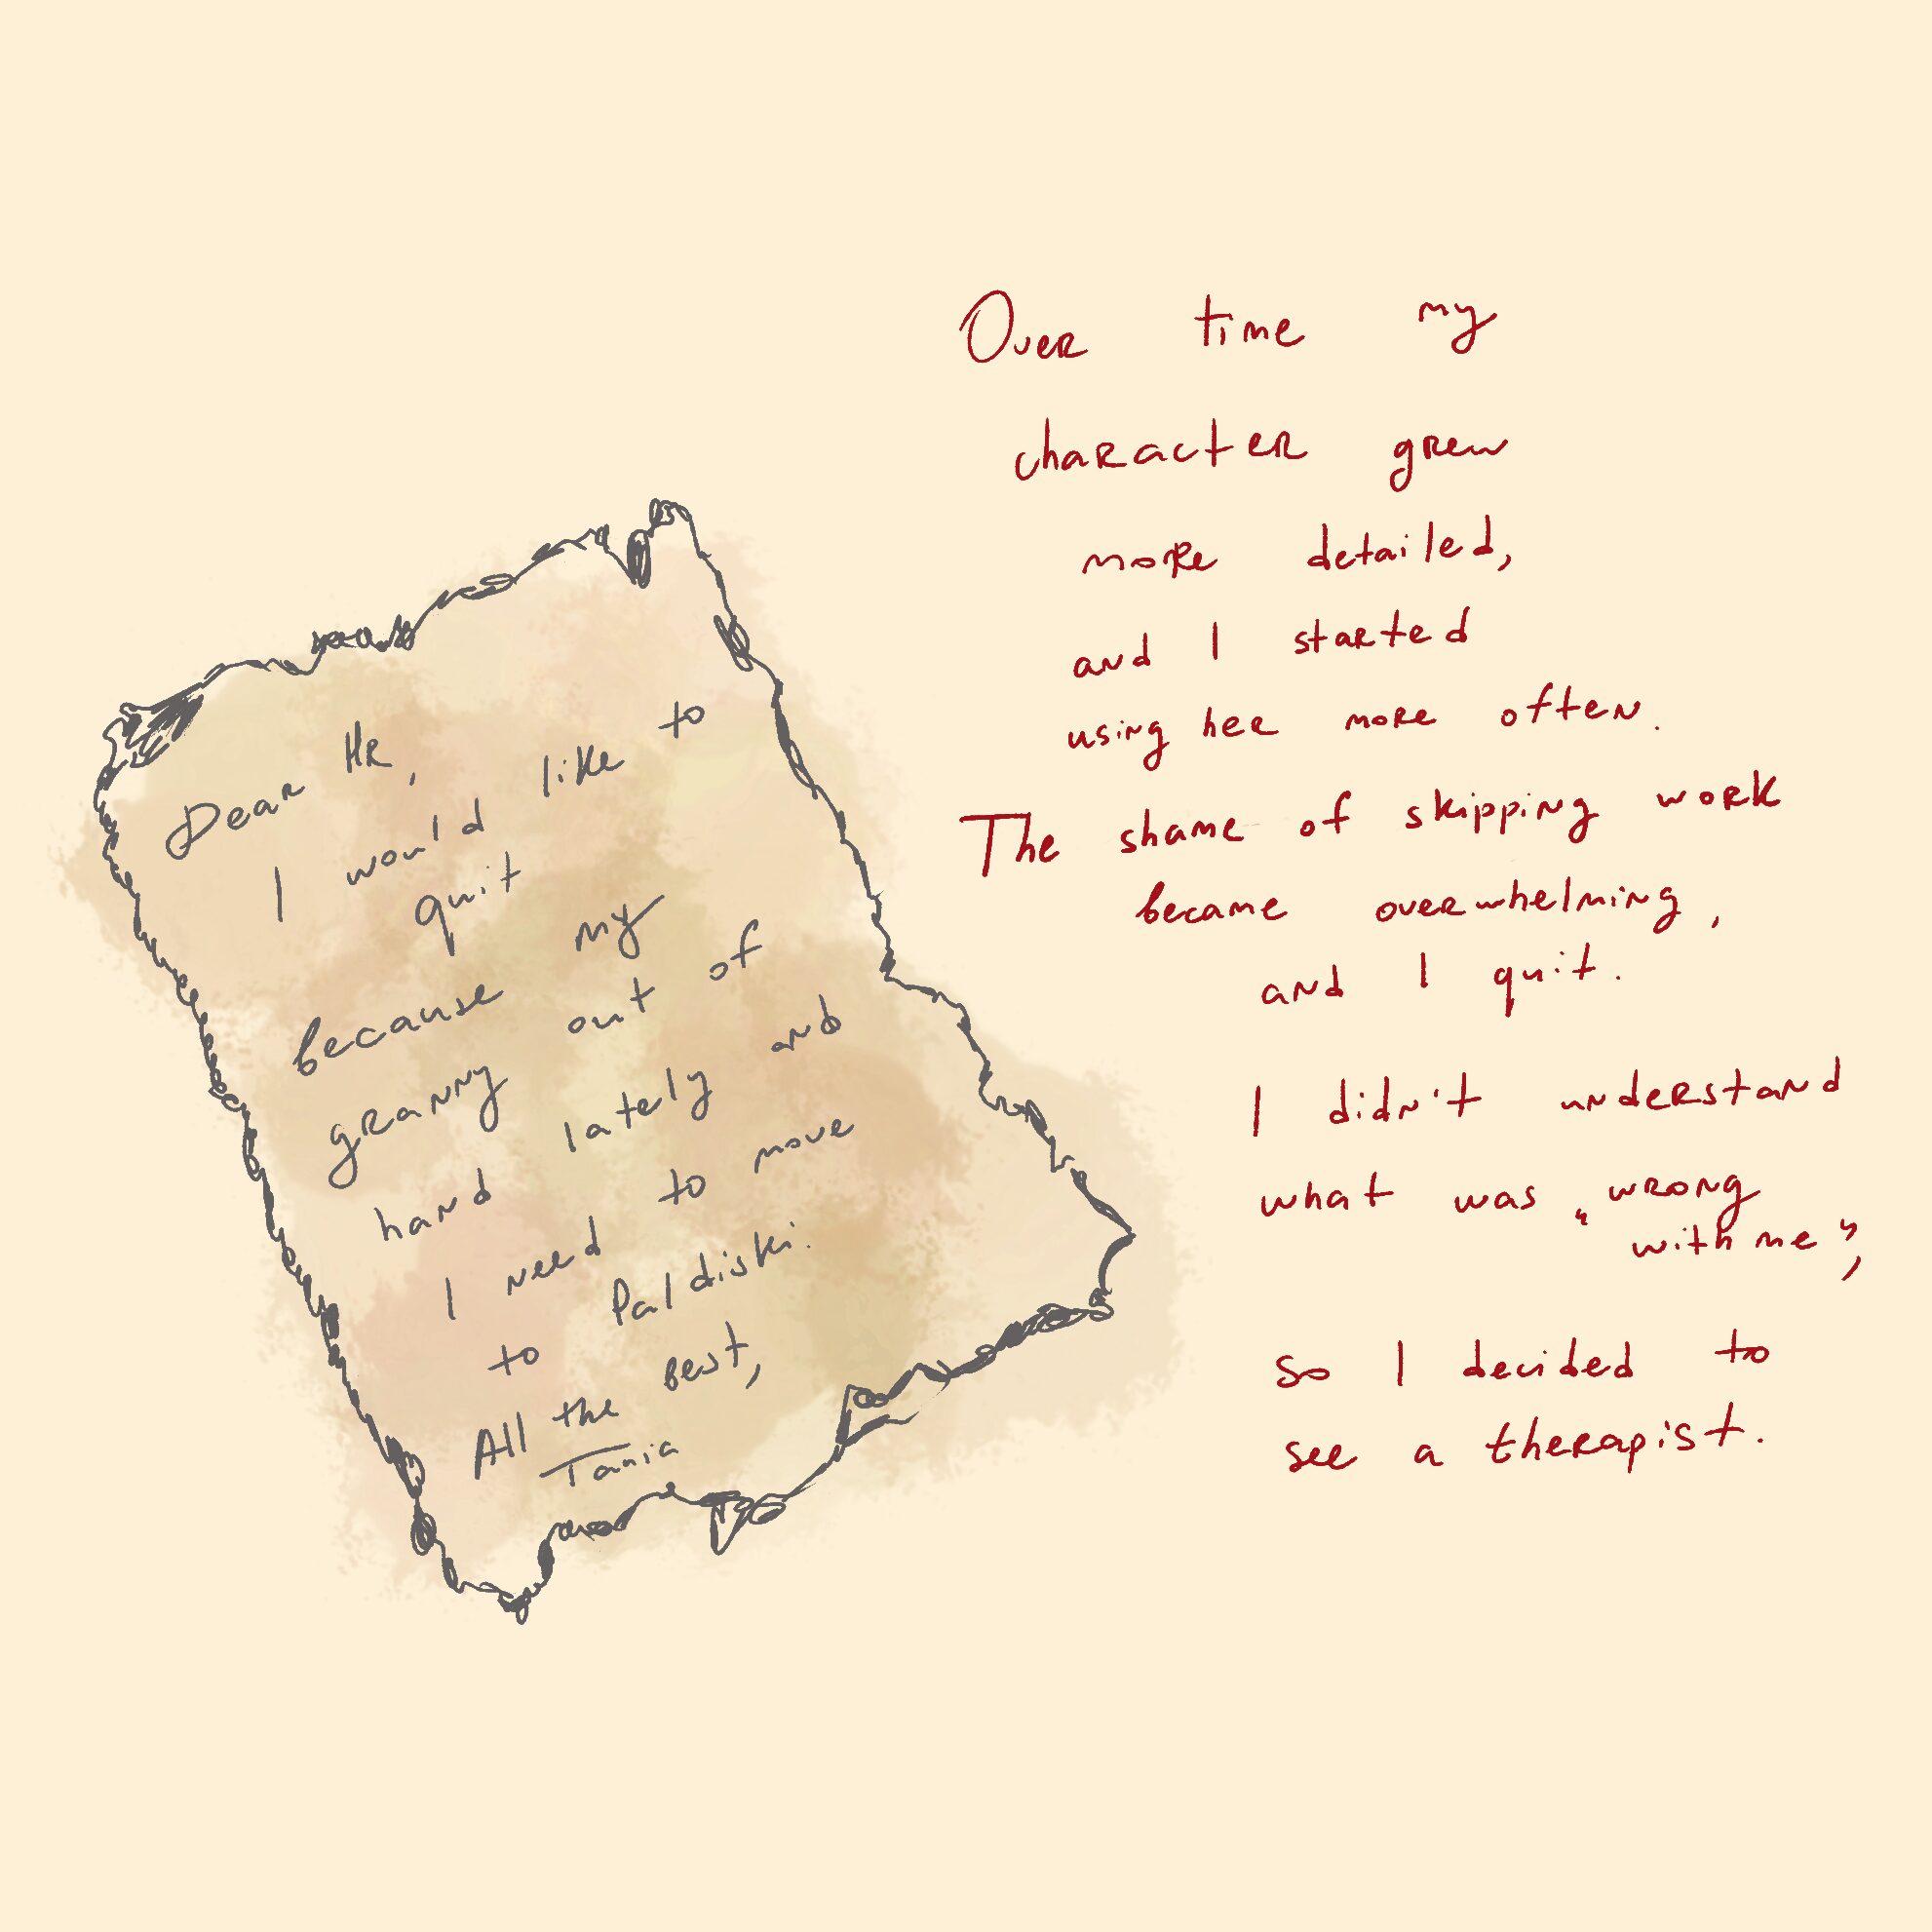 Dear HR,
I would like to
quit
because my
granny out of
hand lately and
I need to move
to Paldiski.
All the best,
Tania
Over time my
character grew
more detailed,
and I started
using her more often.
The shame of skipping work
became overwhelming,
and I quit.
I didn't understand
what was „wrong
with me”,
so I decided to
see a therapist.